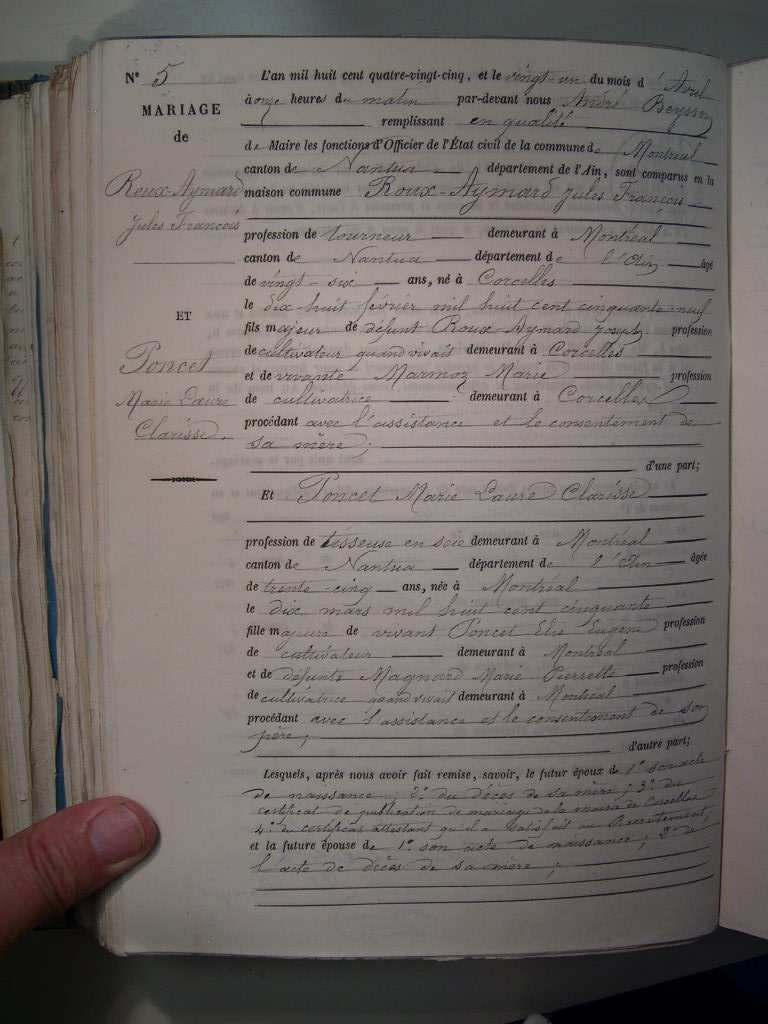 N° 5
MARIAGE
de
Roux-Aymard
Jules François
ET
Poncet
Marie Laure
Clarisse.
L'an mil huit cent quatre-vingt-cinq, et le vingt-un du mois d'Avril
à onze heures du matin par-devant nous André Beyssin
remplissant en qualité
de Maire les fonctions d'Officier de l'État civil de la commune de Montréal
canton de Nantua département de l'Ain, sont comparus en la
maison commune Roux-Aymard Jules François
profession de tourneur demeurant à Montréal
canton de Nantua département de l'Ain âgé
de vingt-six ans, né à Corcelles
le dix-huit février mil huit cent cinquante neuf
fils majeur de défunt Roux-Aymard Joseph profession
de cultivateur quand vivait demeurant à Corcelles
et de vivante Marmoz Marie profession
de cultivatrice demeurant à Corcelles
procédant avec l'assistance et le consentement de
sa mère ;
d'une part;
Et Poncet Marie Laure Clarisse
profession de tisseuse en soie demeurant à Montréal
canton de Nantua département de l'Ain âgée
de trente-cinq ans, née à Montréal
le dix mars mil huit cent cinquante
fille majeure de vivant Poncet Elie Eugène profession
de cultivateur demeurant à Montréal
et de défunte Magnard Marie Pierrette profession
de cultivatrice quand vivait demeurant à Montréal
procédant avec l'assistance et le consentement de son
père ;
d'autre part;
Lesquels, après nous avoir fait remise, savoir, le futur époux de 1° son acte
de naissance ; 2° du décès de sa mère ; 3° du
certificat de publication de mariage de la mairie de Corcelles
4° du certificat attestant qu'il a satisfait au Recrutement,
et la future épouse de 1° son acte de naissance ; 2° de
l'acte de décès de sa mère ;